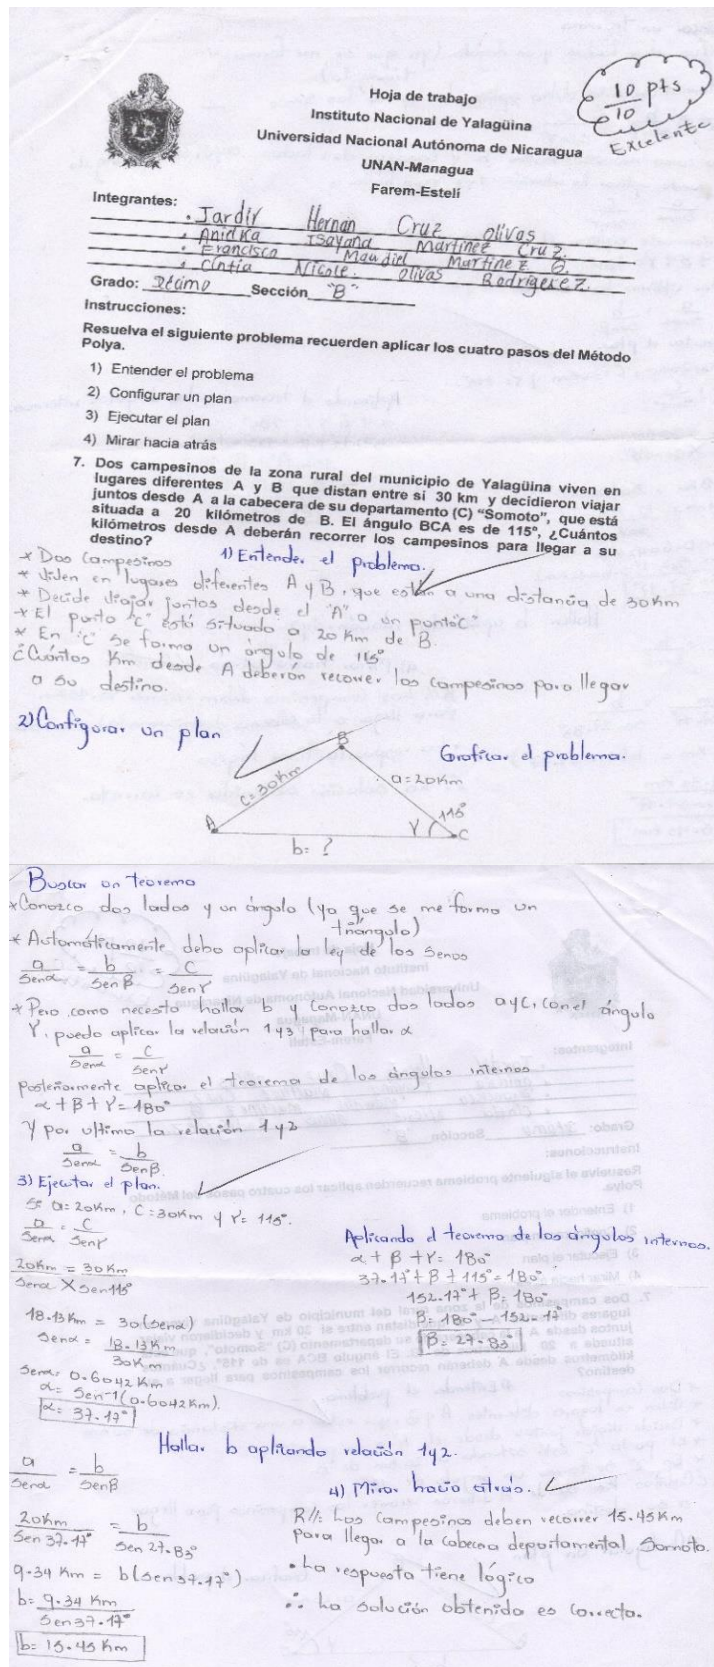 10 pts
10
Excelente
Hoja de trabajo
Instituto Nacional de Yalagüina
Universidad Nacional Autónoma de Nicaragua
UNAN-Managua
Farem-Esteli
Integrantes:
• Jardir Hernan Cruz Olivas
• Anidka Isayana Martinez Cruz.
• Francisco Maudiel Martinez O.
• Cintia Nicole. Olivas Rodriguez
Grado: Décimo Sección "B"
Instrucciones:
Resuelva el siguiente problema recuerden aplicar los cuatro pasos del Método
Polya.
1) Entender el problema
2) Configurar un plan
3) Ejecutar el plan
4) Mirar hacia atrás
7. Dos campesinos de la zona rural del municipio de Yalagüina viven en
lugares diferentes A y B que distan entre sí 30 km y decidieron viajar
juntos desde A a la cabecera de su departamento (C) "Somoto", que está
situada a 20 kilómetros de B. El ángulo BCA es de 115º, ¿Cuántos
kilómetros desde A deberán recorrer los campesinos para llegar a su
destino?
1) Entender el problema.
* Dos Campesinos
* Viven en lugares diferentes A y B, que están a una distancia de 30 Km
* Decide viajar juntos desde el "A" a un punto "C"
* El punto "C" está situado a 20 Km de B.
* En "C" se forma un ángulo de 115°
¿Cuántos Km desde A deberán recorrer los campesinos para llegar
a su destino.
2) Configurar un plan
Graficar el problema.
B
c=30Km
a=20Km
115°
A
γ
C
b= ?
Buscar un teorema
* Conozco dos lados y un ángulo (ya que se me forma un
triángulo)
* Automáticamente debo aplicar la ley de los senos
a/Senα = b/Senβ = c/Senγ
* Pero como necesito hallar b y conozco dos lados a y c, con el ángulo
γ, puedo aplicar la relación 1 y 3 para hallar α
a/Senα = c/Senγ
posteriormente aplicar el teorema de los ángulos internos
α + β + γ = 180°
y por ultimo la relación 1 y 2
a/Senα = b/Senβ.
3) Ejecutar el plan.
Si a=20Km, C=30Km y γ= 115°.
a/Senα = c/Senγ
20Km/Senα = 30Km/Sen115°
18.13Km = 30(senα)
Senα = 18.13Km/30Km
Senα= 0.6042Km
α= Sen-1(0.6042Km).
α= 37.17°
Aplicando el teorema de los ángulos internos.
α + β + γ= 180°
37.17° + β + 115° = 180°
152.17° + β= 180°
β= 180° - 152.17°
β= 27.83°
Hallar b aplicando relación 1 y 2.
a/Senα = b/Senβ
20Km/Sen 37.17° = b/Sen 27.83°
9.34 Km = b(Sen 37.17°)
b= 9.34 Km/Sen 37.17°
b= 15.45 Km
4) Mirar hacia atrás.
R//: Los campesinos deben recorrer 15.45Km
para llegar a la cabecera departamental Somoto.
• La respuesta tiene lógica
∴ La solución obtenida es correcta.